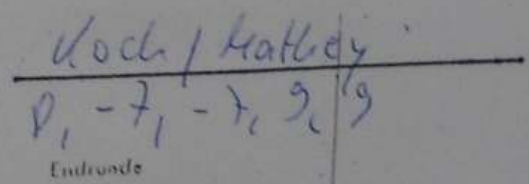 Koch / Mathey
8, -7, -7, 9, 9
Endrunde